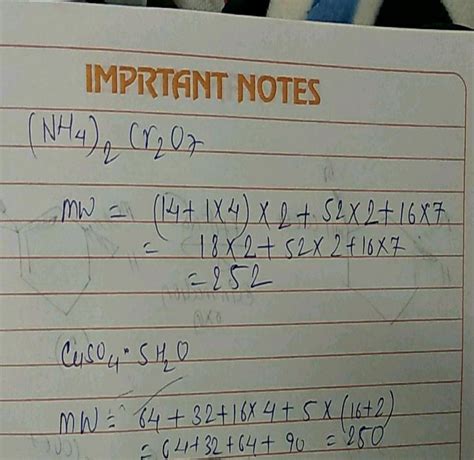 IMPRTANT NOTES
(NH4)2 Cr2O7
MW = (14+1×4)×2+52×2+16×7
= 18×2+52×2+16×7
=252
CuSO4·5H2O
MW= 64+32+16×4+5×(16+2)
= 64+32+64+90 =250